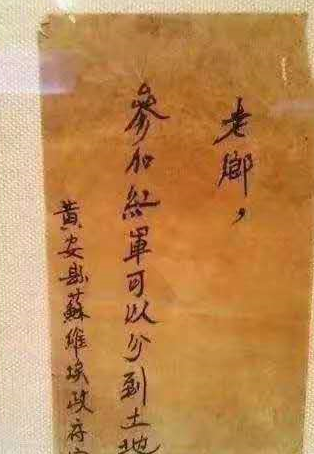 老鄉，
參加紅軍可以分到土地
黃安縣蘇維埃政府